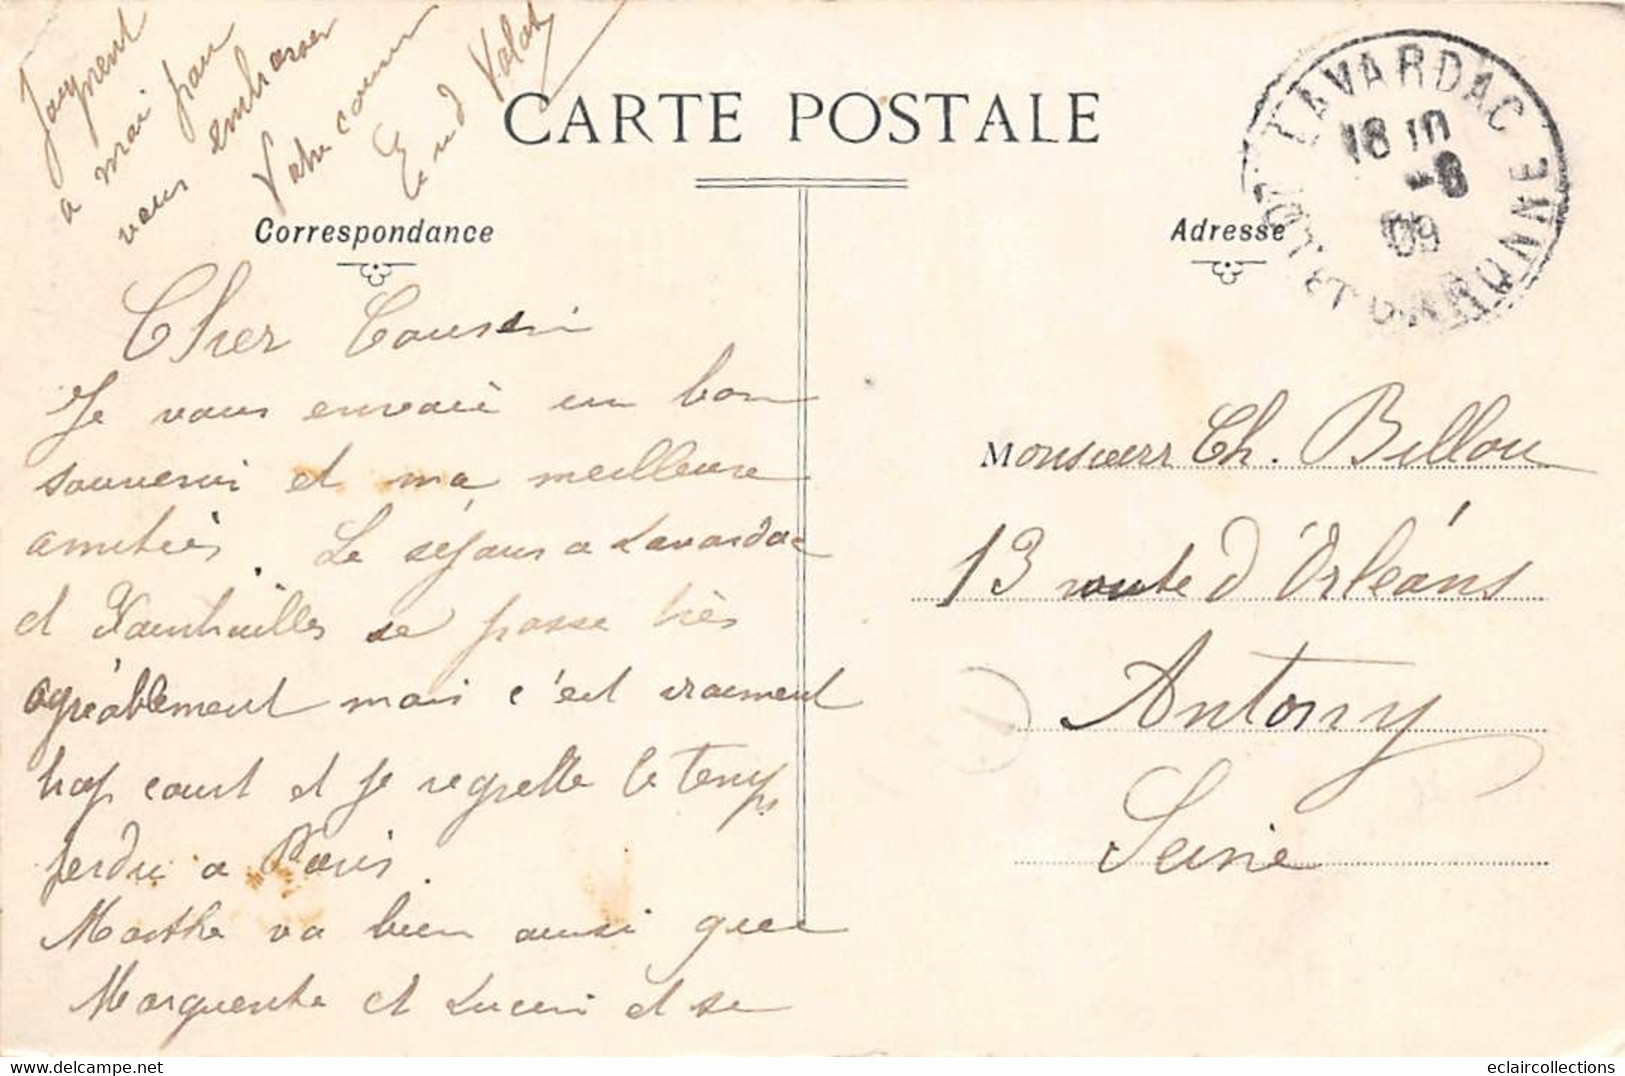 CARTE POSTALE
Correspondance
Adresse
LAVARDAC
18 10
-8
09
LOT ET GARONNE
Cher Cousin
Je vous envoie un bon
souvenir et ma meilleure
amitiès. Le séjour a Lavardac
et Xaintrailles se passe très
agréablement mais c'est vraiment
trop court et je regrette le temps
perdu a Paris.
Marthe va bien ainsi que
Marguerite et Lucien et se
joignent
a moi pour
vous embrasser
Votre cousin
Monsieur Ch. Billou
13 route d'Orléans
Antony
Seine
eclaircollections